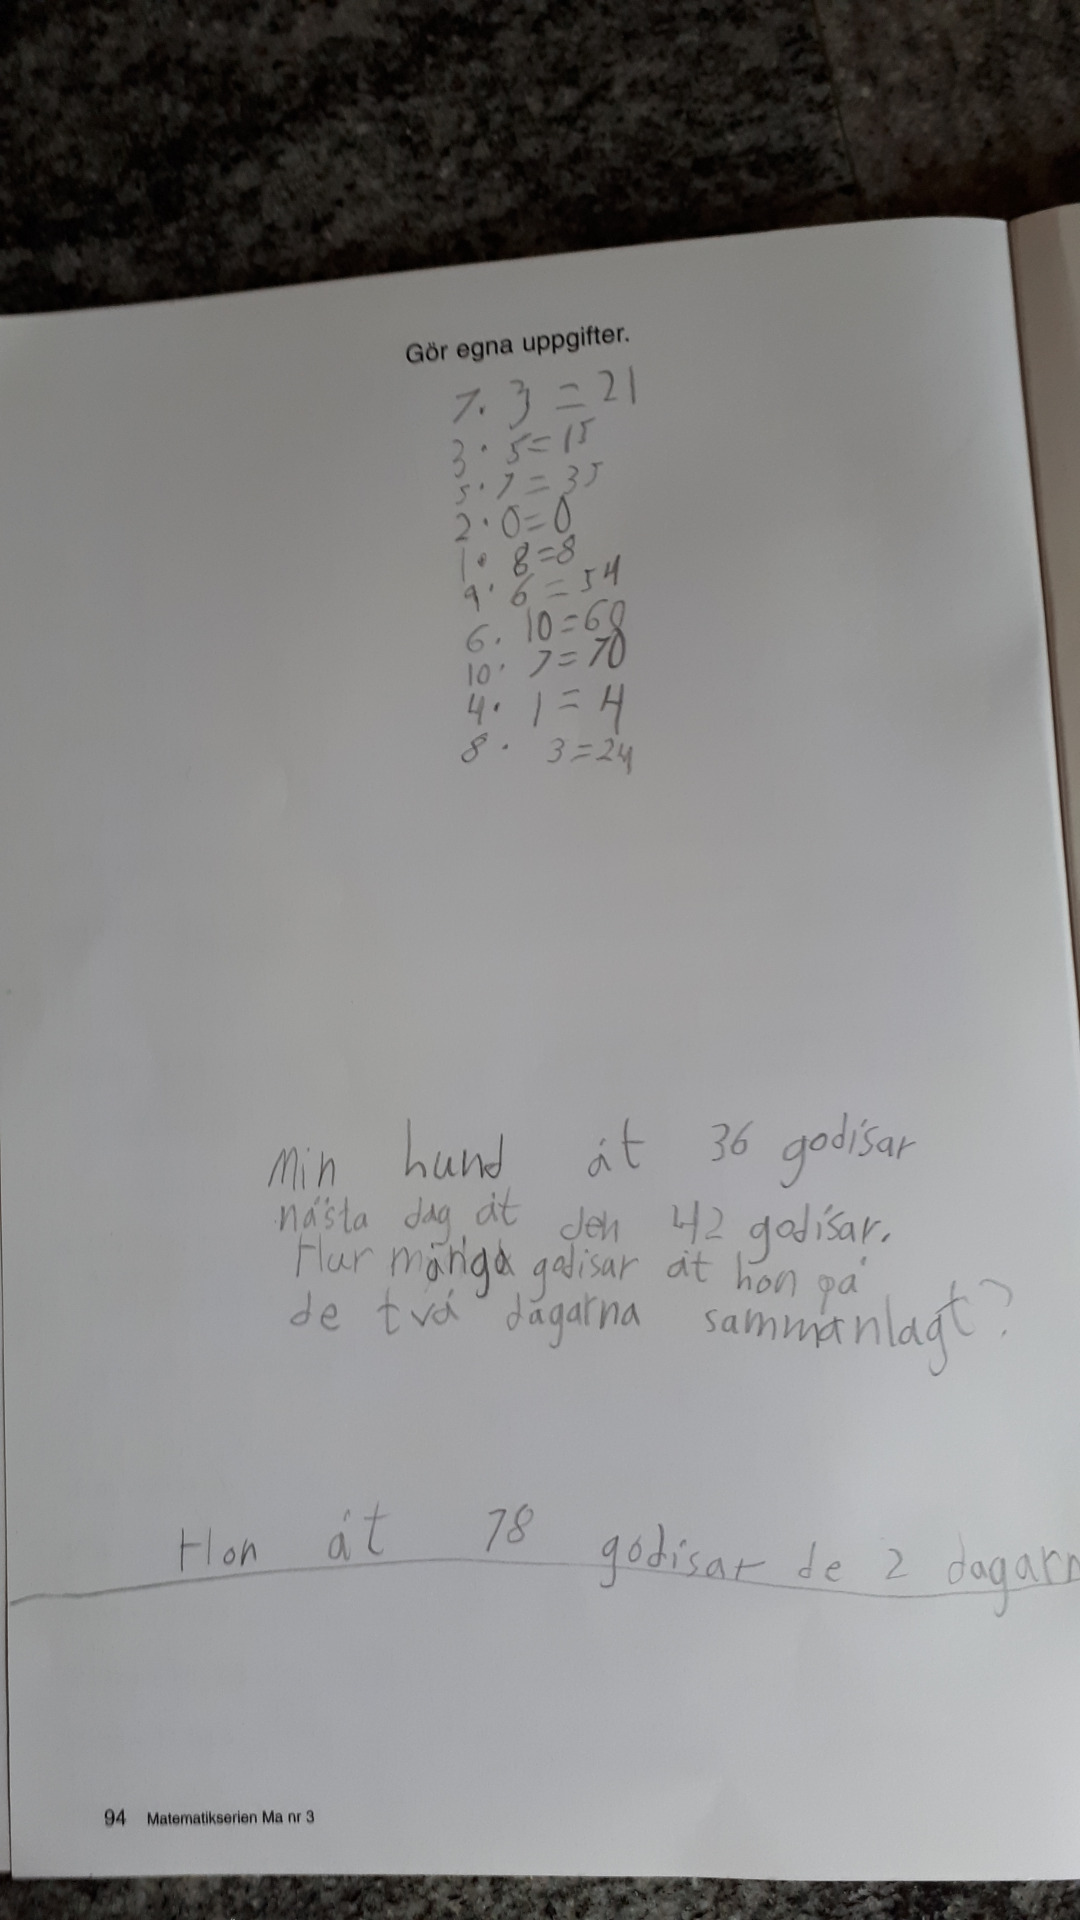 Gör egna uppgifter.
7 · 3 = 21
3 · 5 = 15
5 · 7 = 35
2 · 0 = 0
1 · 8 = 8
9 · 6 = 54
6 · 10 = 60
10 · 7 = 70
4 · 1 = 4
8 · 3 = 24
Min hund åt 36 godisar
nästa dag åt den 42 godisar.
Hur många godisar åt hon på
de två dagarna sammanlagt?
Hon åt 78 godisar de 2 dagarn
94 Matematikserien Ma nr 3